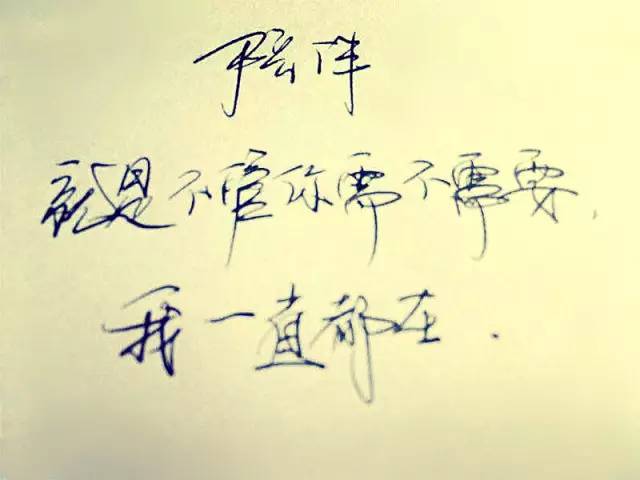 陪伴
就是不管你需不需要,
我一直都在.